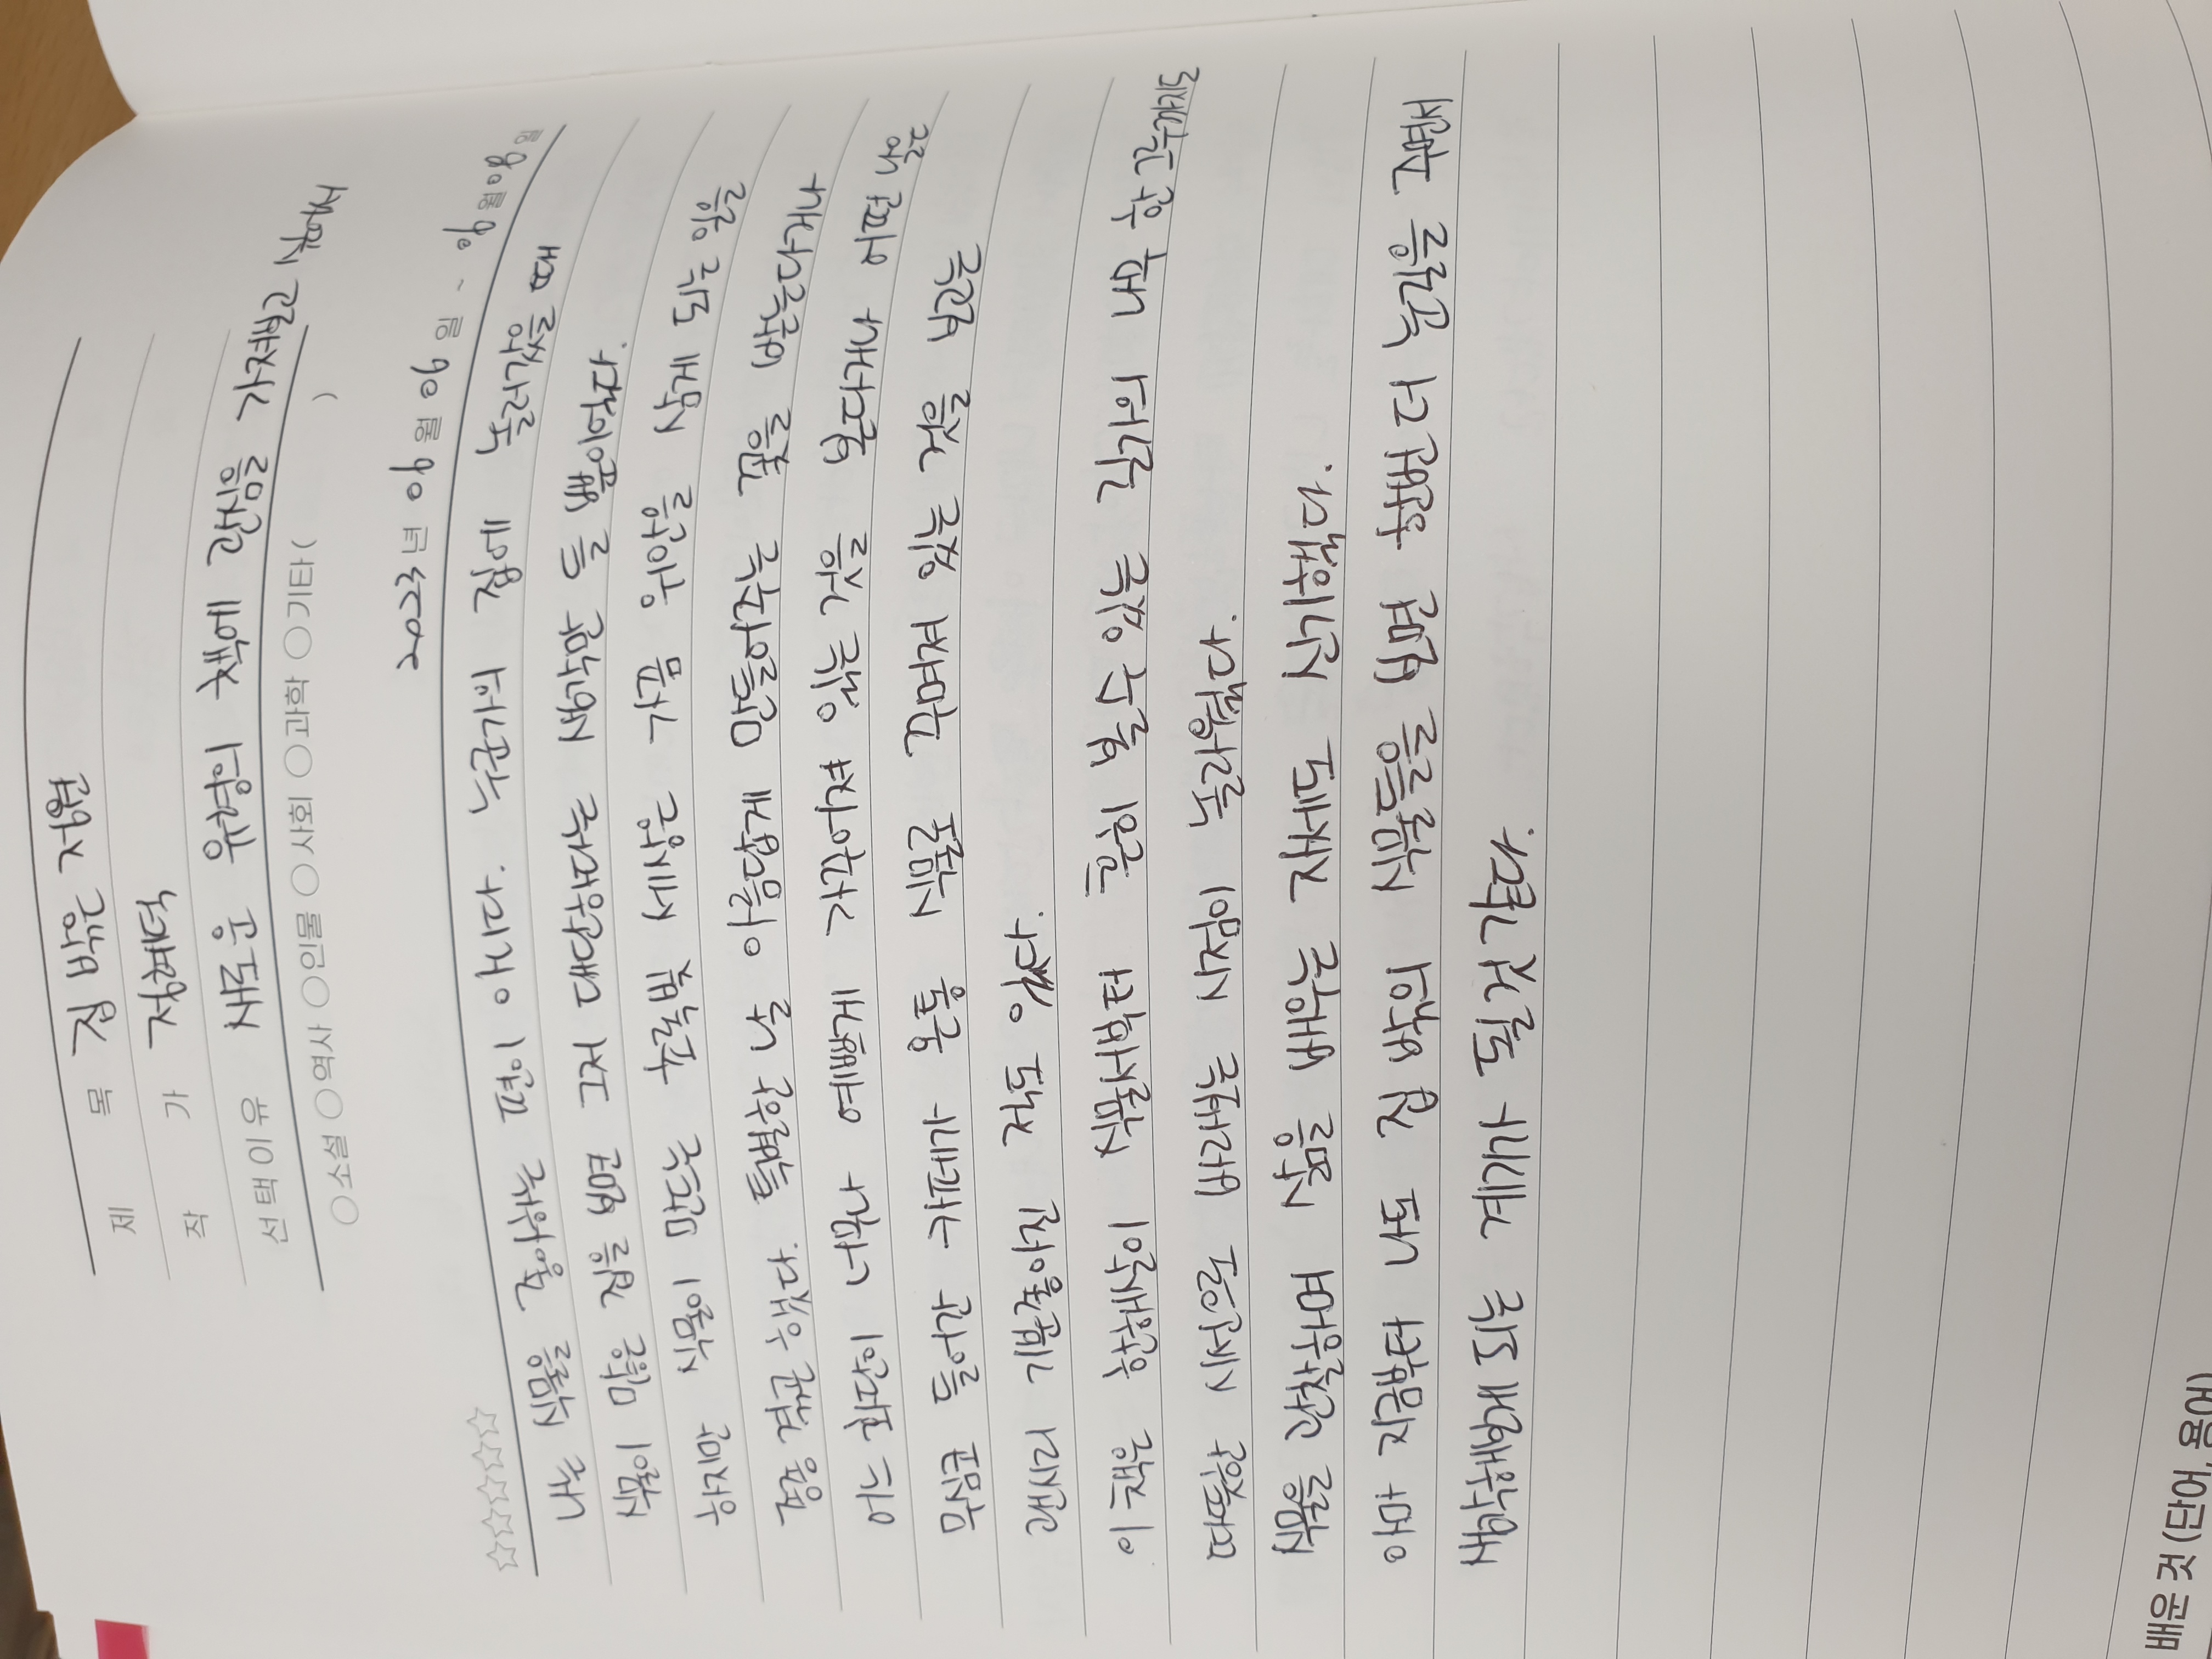 제 목 집 밖은 정원
작 가 정혜덕
선택이유 새로운 유형의 책에 관심을 가져보고 싶어서
○소설 ○역사 ○인물 ○사회 ○과학 ○기타( )
2023년 06월 06일 ~ 06월 08일
☆☆☆☆☆
나는 식물을 좋아하는 편이 아니다. 누군가의 집에 놀러갔을 때
식물이 많은 집을 보면 그저 대단하다는 생각만 들 뿐이었다.
하지만 식물이 만드는 초록빛 세상은 가끔 위안을 삼게 되는 일을
종종 겪곤 했다. 특별한 날 아름답게 만들어주는 꽃을 받는다거나
어느 화단이 너무나 예쁘게 가꾸어져 있는 것을 본다거나 어떤 날은
무심코 들어간 카페가 온통 식물로 꾸며져 있는 것을 보고는
괜시리 기분좋아진 적도 있다.
이 책은 한해살이 식물서부터 흔히 볼 수 있는 길가의 나무 한 그루까지도
따뜻한 시선으로 바라보는 시점이 놀라웠다.
식물을 관찰하며 삶을 배우는 자세도 신기했다.
아마 지금부터 나도 집 밖의 식물들을 보면 한번 더 눈길을 주면서
생각해보게 되는 계기가 될 것 같다.
배운 것 (단어, 용어)